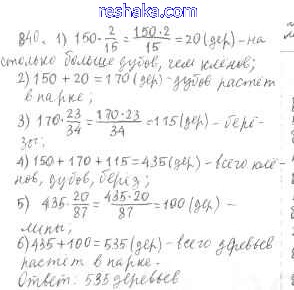 reshaka.ru
840. 1) 150·2/15 = 150·2/15 = 20 (дер) – на
столько больше дубов, чем клёнов;
2) 150 + 20 = 170 (дер) – дубов растёт
в парке;
3) 170·23/34 = 170·23/34 = 115 (дер) – берё-
зы;
4) 150 + 170 + 115 = 435 (дер) – всего клё-
нов, дубов, берёз;
5) 435·20/87 = 435·20/87 = 100 (дер) –
липы;
6) 435 + 100 = 535 (дер) – всего деревьев
растёт в парке.
Ответ: 535 деревьев